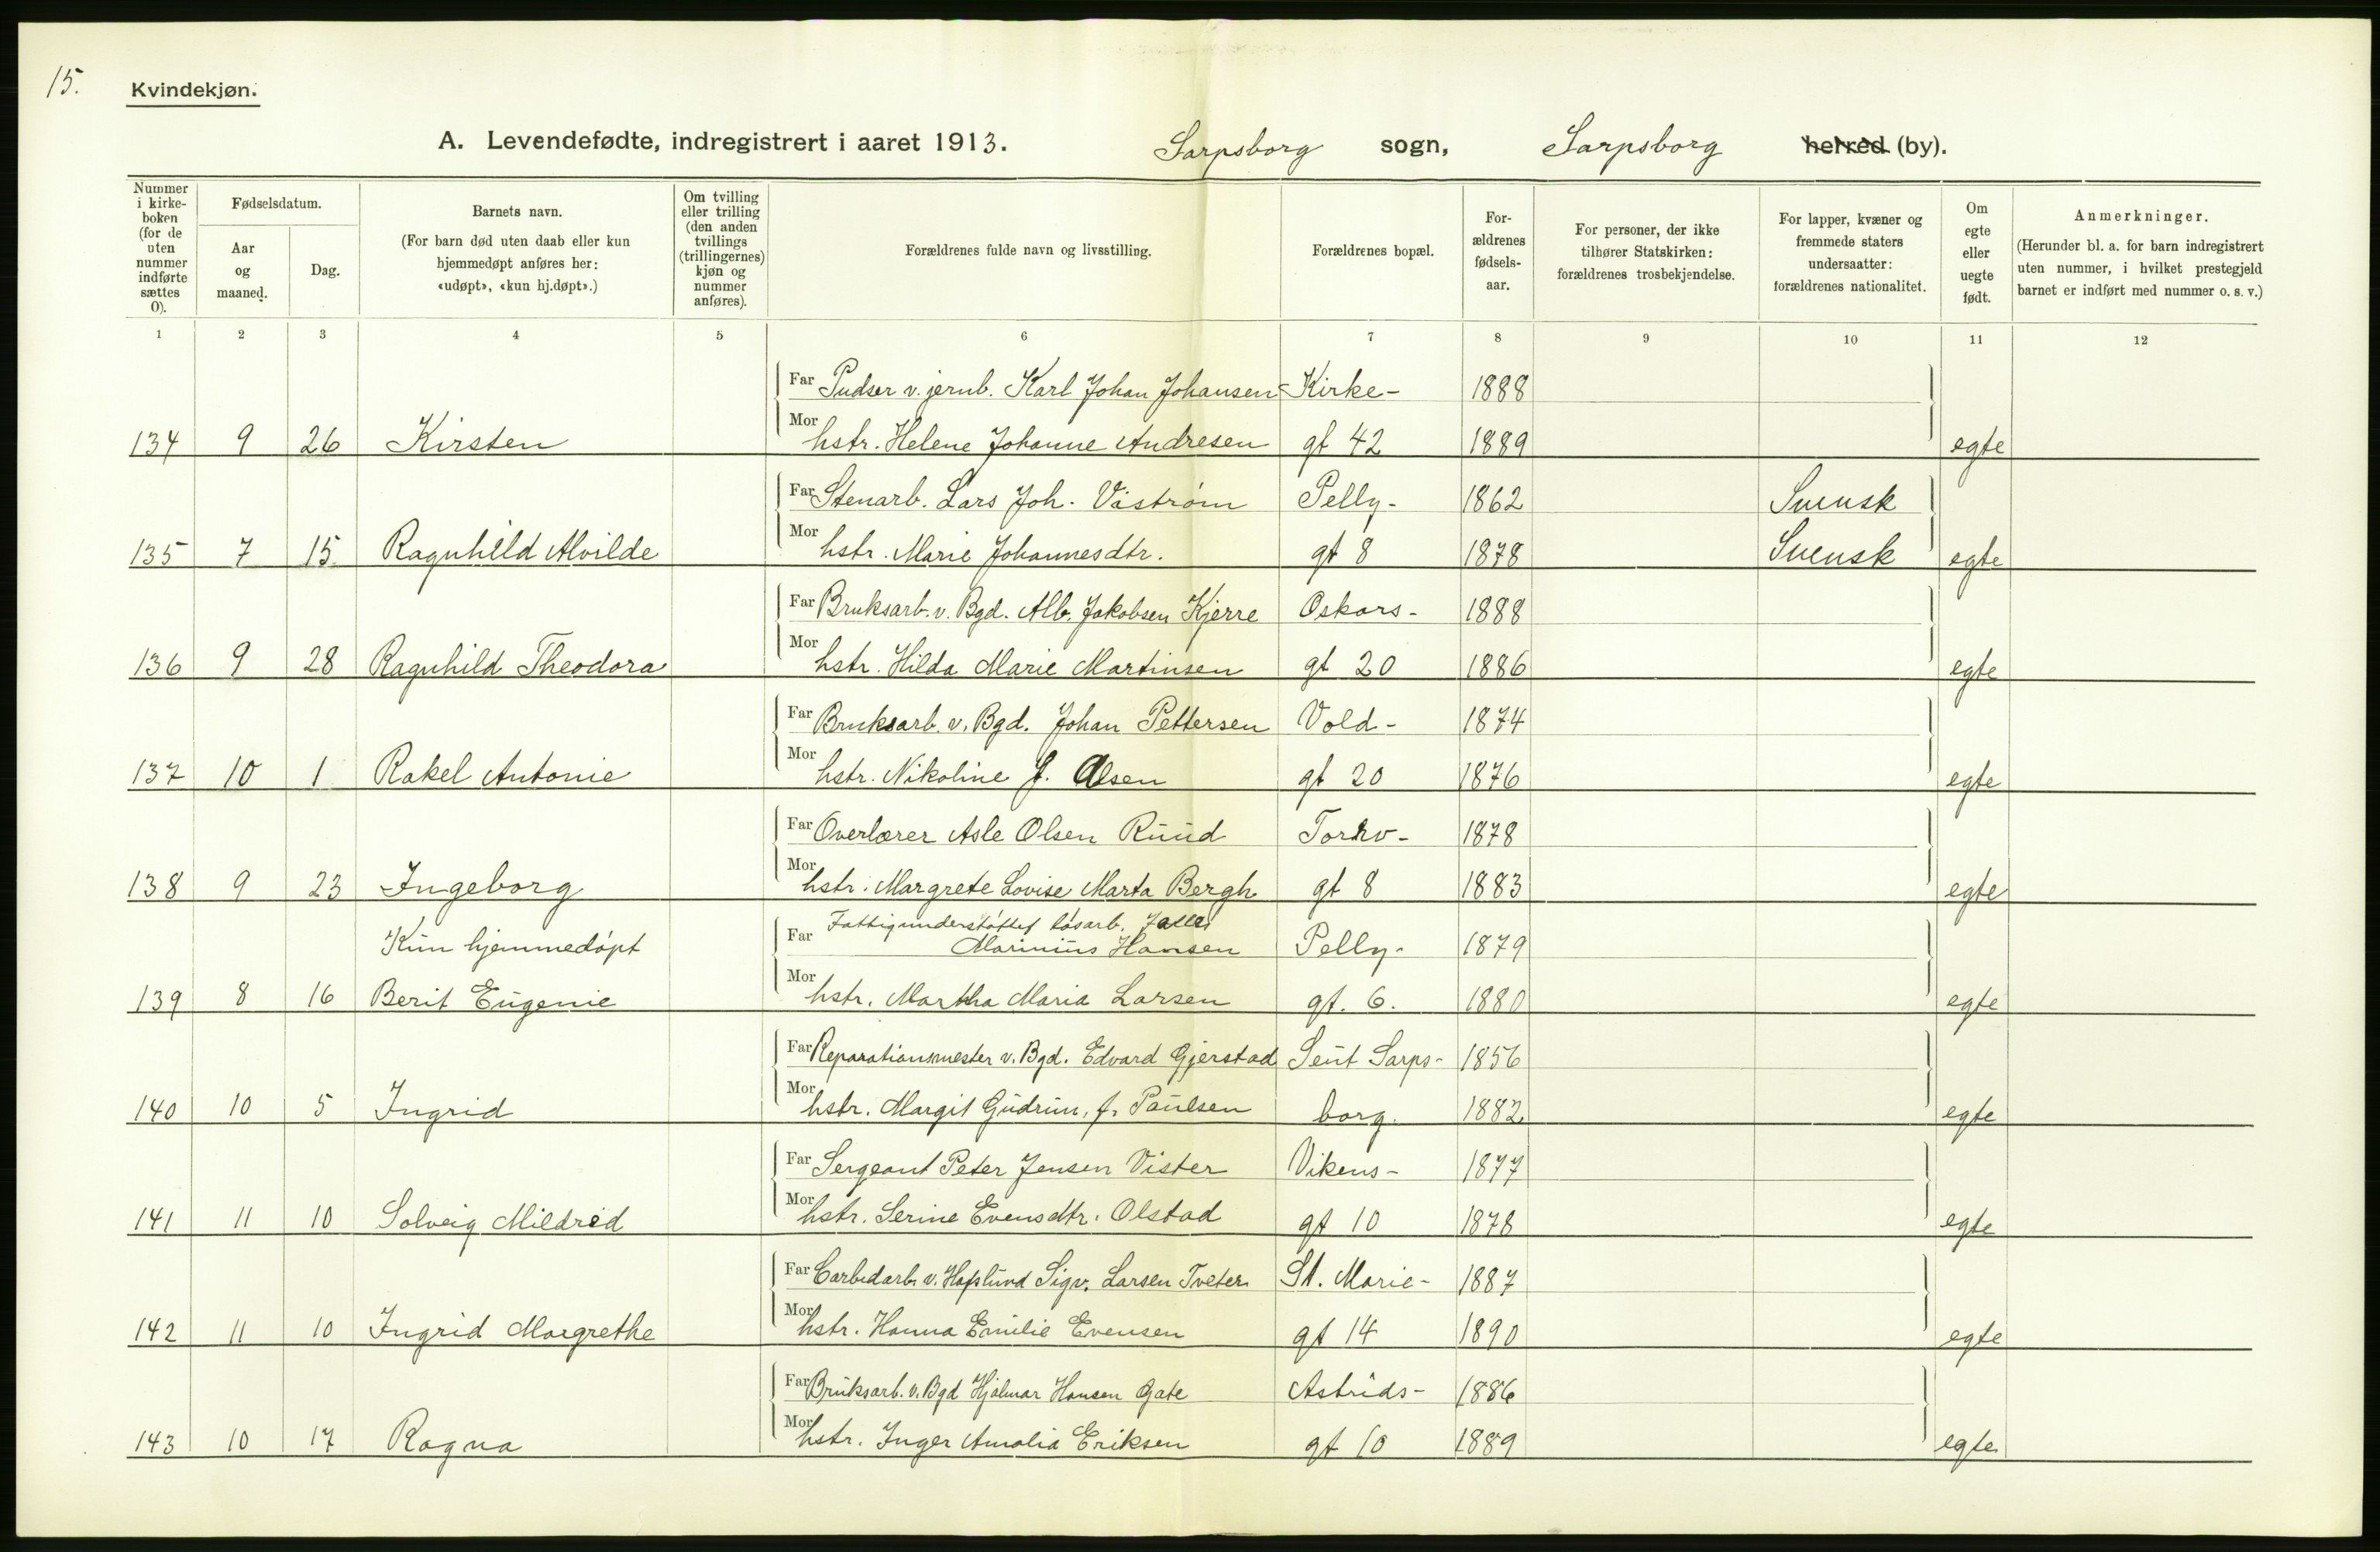 15.
Kvindekjøn.
A. Levendefødte, indregistrert i aaret 1913. Sarpsborg sogn, Sarpsborg herred (by).
Nummer i kirke-boken (for de uten nummer indførte sættes 0).
Fødselsdatum.
Aar og maaned.
Dag.
Barnets navn.
(For barn død uten daab eller kun hjemmedøpt anføres her: «udøpt», «kun hj.døpt».)
Om tvilling eller trilling (den anden tvillings (trillingernes) kjøn og nummer anføres).
Forældrenes fulde navn og livsstilling.
Forældrenes bopæl.
For-ældrenes fødsels-aar.
For personer, der ikke tilhører Statskirken: forældrenes trosbekjendelse.
For lapper, kvæner og fremmede staters undersaatter: forældrenes nationalitet.
Om egte eller uegte født.
Anmerkninger.
(Herunder bl. a. for barn indregistrert uten nummer, i hvilket prestegjeld barnet er indført med nummer o. s. v.)
1 2 3 4 5 6 7 8 9 10 11 12
Far Pudser v. jernb. Karl Johan Johansen Kirke- 1888
134 9 26 Kirsten Mor hstr. Helene Johanne Andresen gt 42 1889 egte
Far Stenarb. Lars Joh. Viström Pelly- 1862 Svensk
135 7 15 Ragnhild Alvilde Mor hstr. Marie Johannesdtr. gt 8 1878 Svensk egte
Far Bruksarb. v. Bgd. Alb. Jakobsen Kjerre Oskars- 1888
136 9 28 Ragnhild Theodora Mor hstr. Hilda Marie Martinsen gt 20 1886 egte
Far Bruksarb. v. Bgd. Johan Pettersen Vold- 1874
137 10 1 Rakel Antonie Mor hstr. Nikoline f. Olsen gt 20 1876 egte
Far Overlærer Asle Olsen Ruud Torv- 1878
138 9 23 Ingeborg Mor hstr. Margrete Lovise Marta Bergh gt 8 1883 egte
Far Fattigunderstøttet løsarb.
Kun hjemmedøpt Marinius Hansen Pelly- 1879
139 8 16 Berit Eugenie Mor hstr. Martha Maria Larsen gt. 6. 1880 egte
Far Reparationsmester v. Bgd. Edvard Gjerstad Sent Sarps- 1856
140 10 5 Ingrid Mor hstr. Margit Gudrun, f. Paulsen borg. 1882 egte
Far Sergeant Peter Jensen Vister Vikens- 1877
141 11 10 Solveig Mildred Mor hstr. Serine Evensdtr. Olstad gt 10 1878 egte
Far Carbidarb. v. Hafslund Sigv. Larsen Tveter St. Marie- 1887
142 11 10 Ingrid Margrethe Mor hstr. Hanna Emilie Evensen gt 14 1890 egte
Far Bruksarb. v. Bgd Hjalmar Hansen Gate Astrids- 1886
143 10 17 Ragna Mor hstr. Inger Amalia Eriksen gt 10 1889 egte